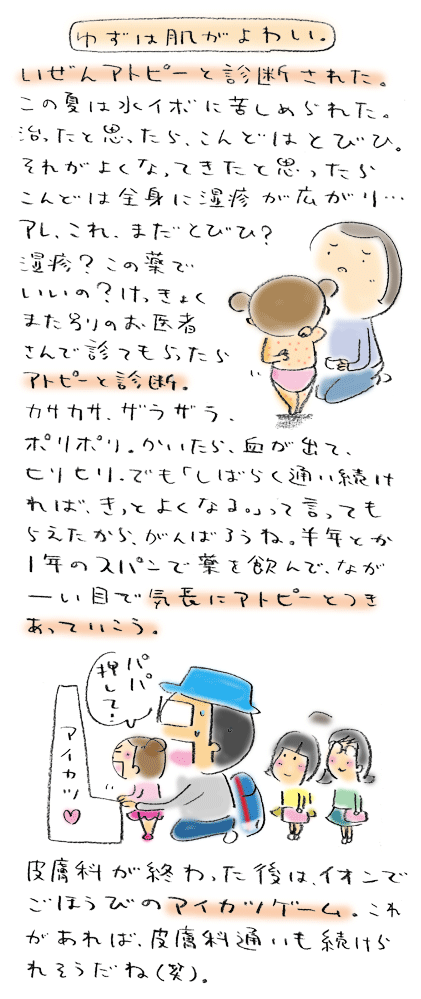 ゆずは肌がよわい。
いぜんアトピーと診断された。
この夏は水イボに苦しめられた。
治ったと思ったら、こんどはとびひ。
それがよくなってきたと思ったら
こんどは全身に湿疹が広がり…
アレ、これ、まだとびひ?
湿疹?この薬で
いいの?けっきょく
また別りのお医者
さんで診てもらったら
アトピーと診断。
カサカサ、ザラザラ、
ポリポリ。かいたら、血が出て、
ヒリヒリ。でも「しばらく通い続け
れば、きっとよくなる。」って言っても
らえたから、がんばろうね。半年とか
1年のスパンで薬を飲んで、なが
ーい目で気長にアトピーとつき
あっていこう。
パパ
押して!
アイカツ
皮膚科が終わった後は、イオンで
ごほうびのアイカツゲーム。これ
があれば、皮膚科通いも続けら
れそうだね(笑)。